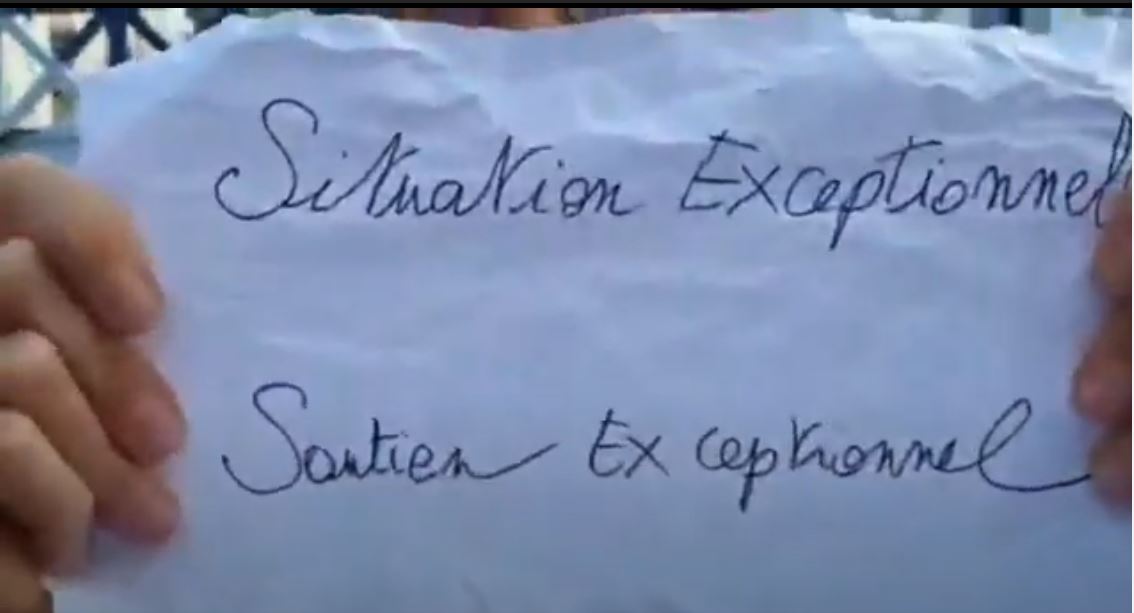 Situation Exceptionnel
Soutien Exceptionnel